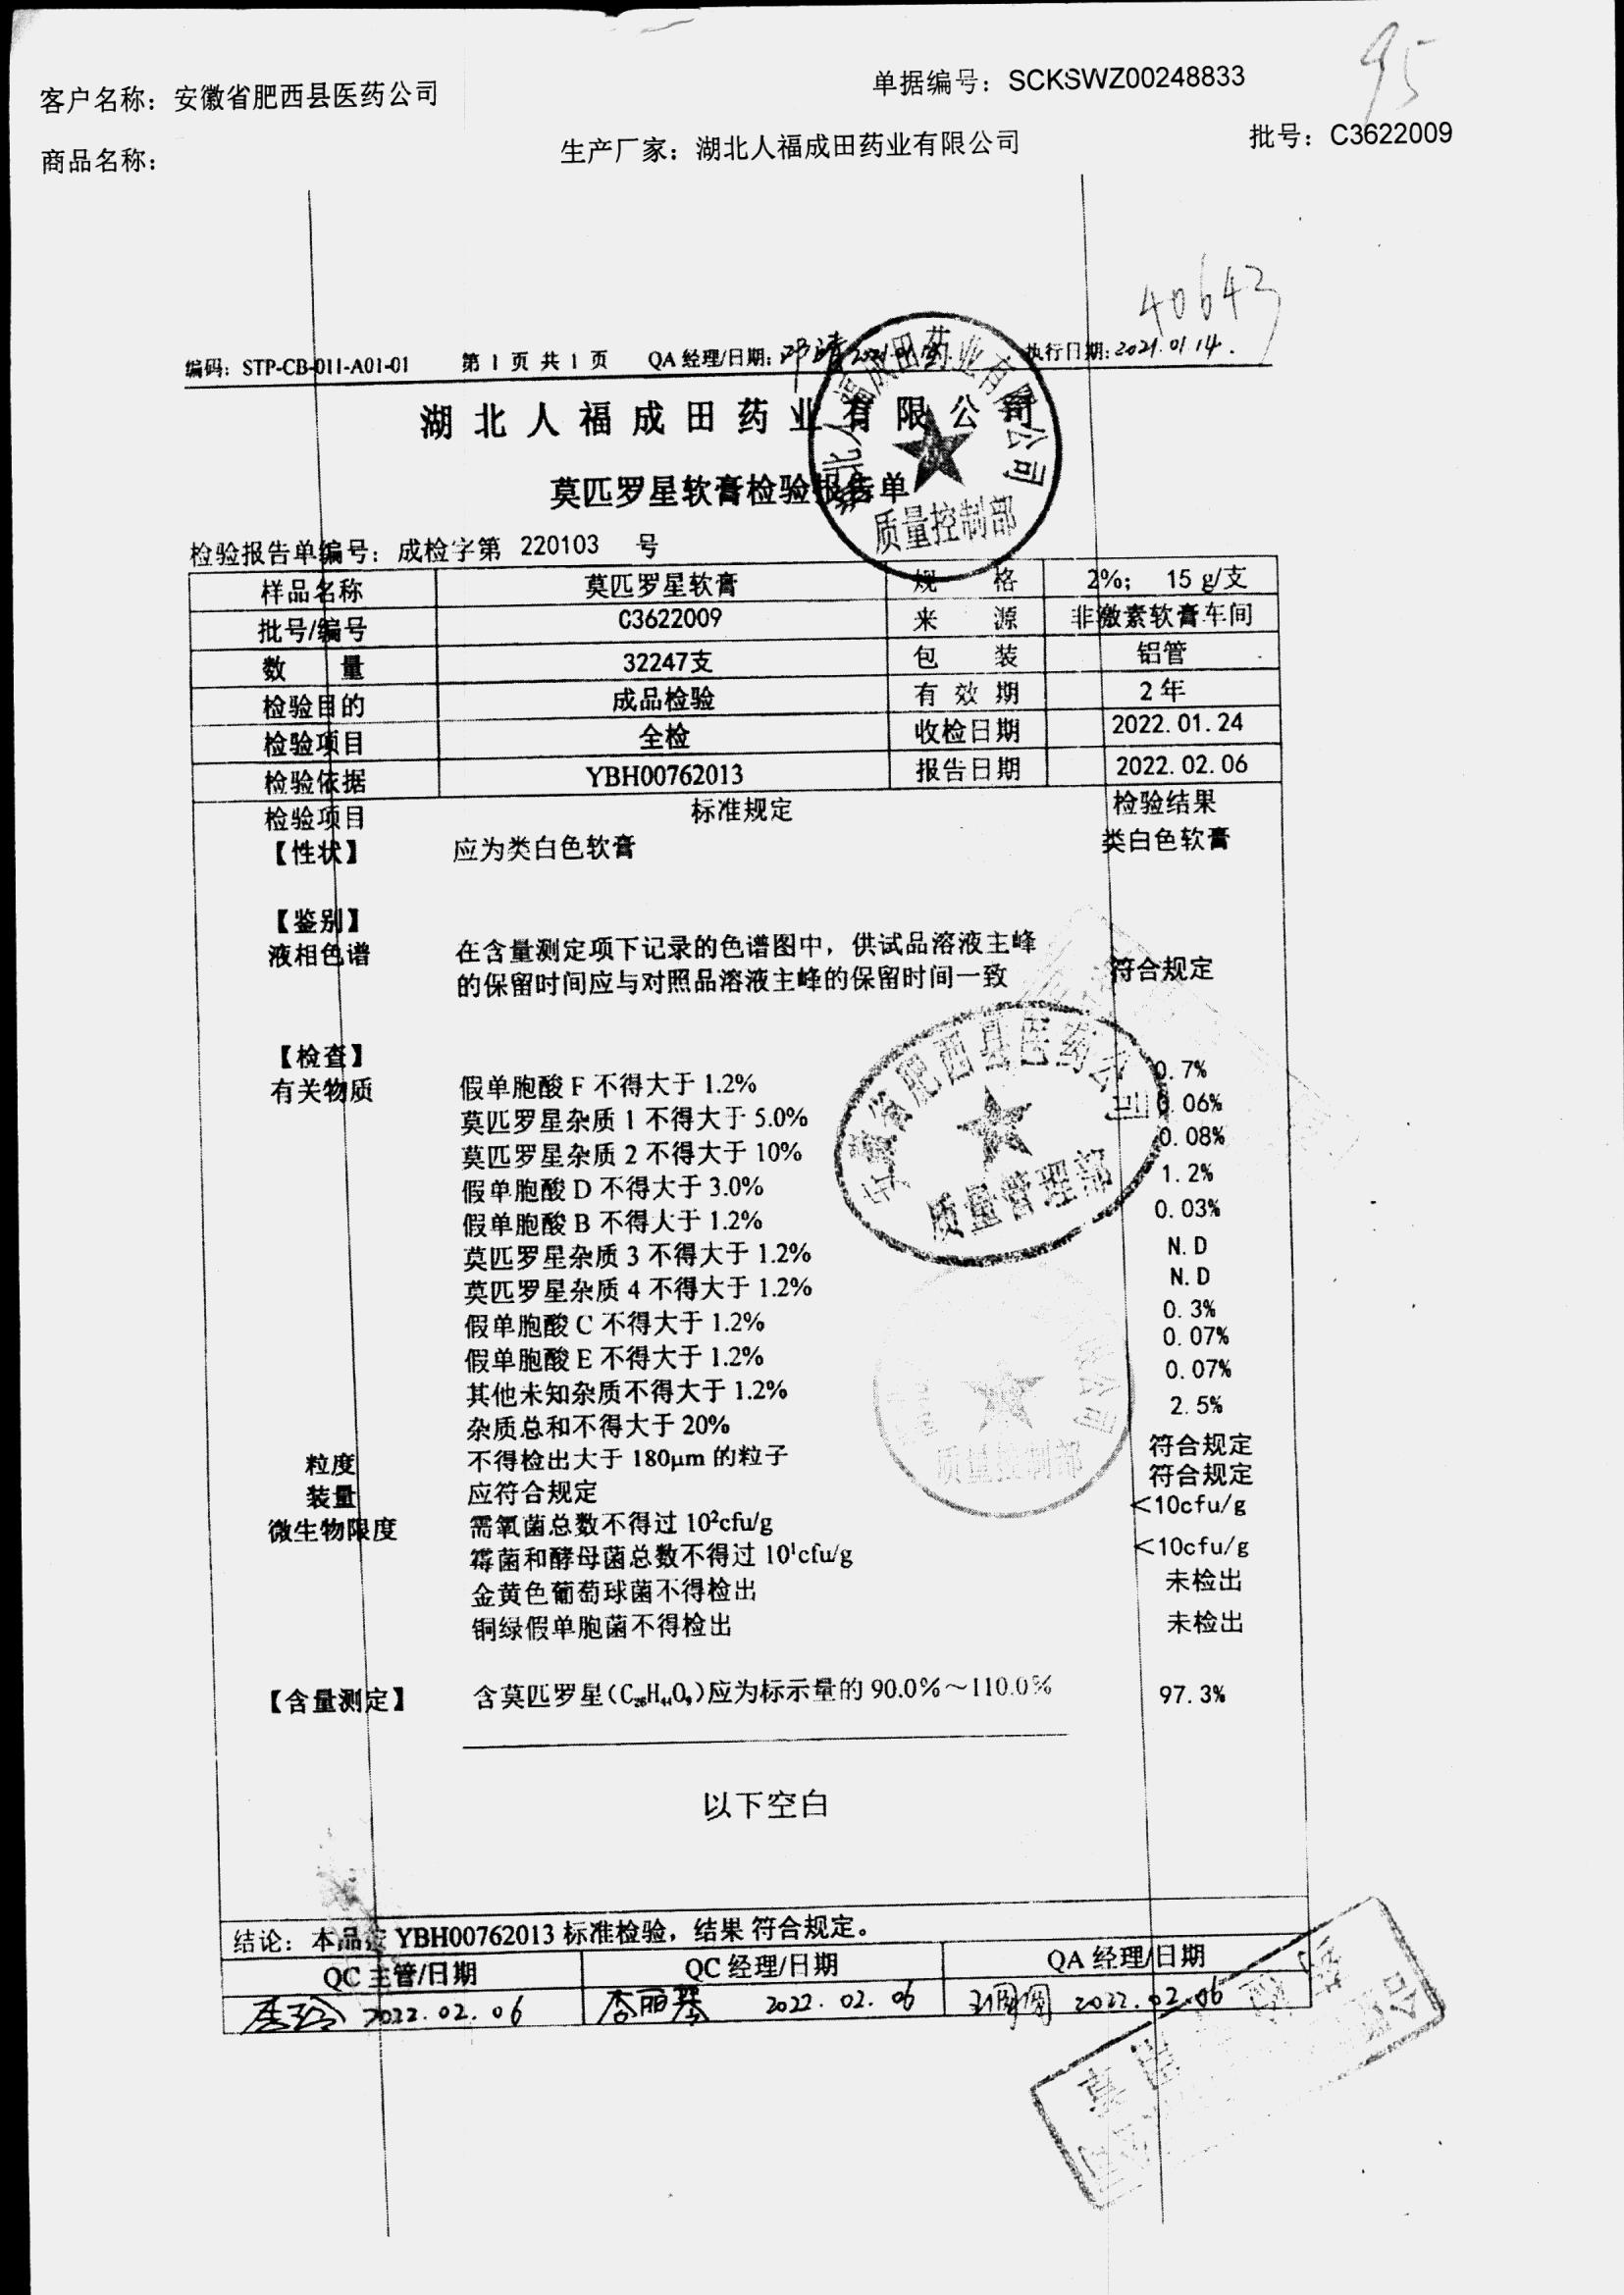 95
客户名称：安徽省肥西县医药公司 单据编号：SCKSWZ00248833
商品名称： 生产厂家：湖北人福成田药业有限公司 批号：C3622009
40643
编码：STP-CB-011-A01-01 第 1 页 共 1 页 QA 经理/日期： 执行日期：2021.01.14.
湖北人福成田药业有限公司
湖北人福成田药业有限公司
质量控制部
莫匹罗星软膏检验报告单
检验报告单编号：成检字第 220103 号
样品名称 莫匹罗星软膏 规 格 2%； 15 g/支
批号/编号 C3622009 来 源 非激素软膏车间
数 量 32247支 包 装 铝管
检验目的 成品检验 有 效 期 2 年
检验项目 全检 收检日期 2022.01.24
检验依据 YBH00762013 报告日期 2022.02.06
检验项目 标准规定 检验结果
【性状】 应为类白色软膏 类白色软膏
【鉴别】
液相色谱 在含量测定项下记录的色谱图中，供试品溶液主峰
的保留时间应与对照品溶液主峰的保留时间一致 符合规定
【检查】
有关物质 假单胞酸 F 不得大于 1.2% 0.7%
莫匹罗星杂质 1 不得大于 5.0% 0.06%
莫匹罗星杂质 2 不得大于 10% 0.08%
假单胞酸 D 不得大于 3.0% 1.2%
假单胞酸 B 不得大于 1.2% 0.03%
莫匹罗星杂质 3 不得大于 1.2% N.D
莫匹罗星杂质 4 不得大于 1.2% N.D
假单胞酸 C 不得大于 1.2% 0.3%
假单胞酸 E 不得大于 1.2% 0.07%
其他未知杂质不得大于 1.2% 0.07%
杂质总和不得大于 20% 2.5%
粒度 不得检出大于 180μm 的粒子 符合规定
装量 应符合规定 符合规定
微生物限度 需氧菌总数不得过 10²cfu/g <10cfu/g
霉菌和酵母菌总数不得过 10¹cfu/g <10cfu/g
金黄色葡萄球菌不得检出 未检出
铜绿假单胞菌不得检出 未检出
安徽省肥西县医药公司
质量管理部
质量控制部
【含量测定】 含莫匹罗星(C₂₆H₄₄O₉)应为标示量的 90.0%～110.0% 97.3%
以下空白
结论：本品按 YBH00762013 标准检验，结果 符合规定。
QC 主管/日期 QC 经理/日期 QA 经理/日期
李玲 2022.02.06 李丽琴 2022.02.06 2022.02.06